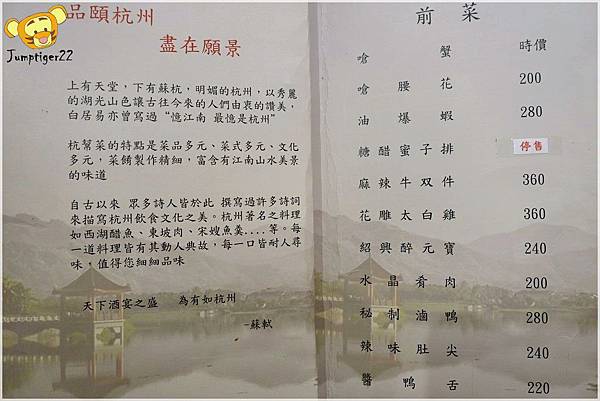 Jumptiger22
品頤杭州
盡在願景
上有天堂，下有蘇杭，明媚的杭州，以秀麗
的湖光山色讓古往今來的人們由衷的讚美，
白居易亦曾寫過“憶江南 最憶是杭州”
杭幫菜的特點是菜品多元、菜式多元、文化
多元，菜餚製作精細，富含有江南山水美景
的味道
自古以來 眾多詩人皆於此 撰寫過許多詩詞
來描寫杭州飲食文化之美。杭州著名之料理
如西湖醋魚、東坡肉、宋嫂魚羹....等。每
一道料理皆有其動人典故，每一口皆耐人尋
味，值得您細細品味
天下酒宴之盛 為有如杭州
-蘇軾
前菜
嗆蟹 時價
嗆腰花 200
油爆蝦 280
糖醋蜜子排 停售
麻辣牛双件 360
花雕太白雞 360
紹興醉元寶 240
水晶肴肉 200
秘制滷鴨 280
辣味肚尖 240
醬鴨舌 220